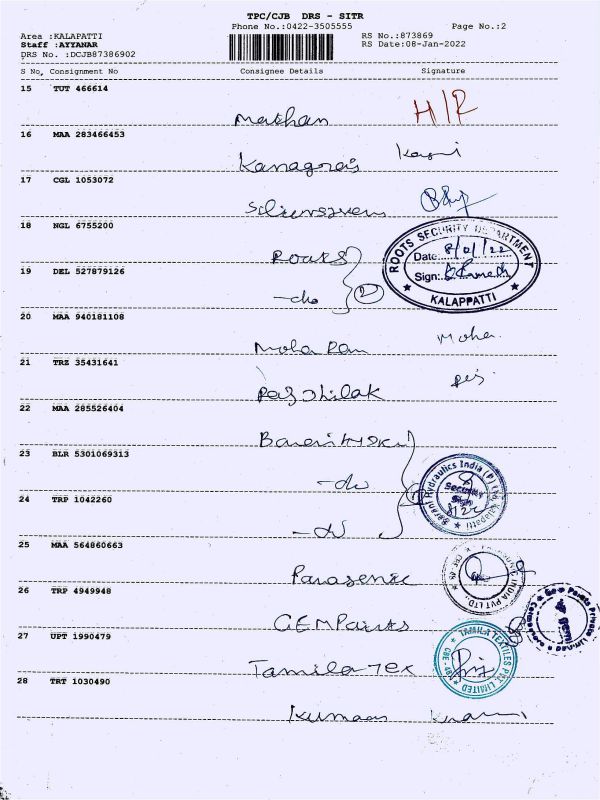 TPC/CJB DRS - SITR
Phone No.:0422-3505555 Page No.:2
Area :KALAPATTI RS No.:873869
Staff :AYYANAR RS Date:08-Jan-2022
DRS No. :DCJB87386902
S No, Consignment No Consignee Details Signature
15 TUT 466614
Mathan H/R
16 MAA 283466453
Kanagaraj
17 CGL 1053072
18 NGL 6755200
Roots
ROOTS SECURITY DEPARTMENT
Date: 8/01/22
Sign:
KALAPPATTI
19 DEL 527879126
-do 2
20 MAA 940181108
Moha
21 TRZ 35431641
22 MAA 285526404
23 BLR 5301069313
-do
Hydraulics India (P) Ltd. Kalapatti
Security
24 TRP 1042260
-do
25 MAA 564860663
Panasonic
INDIA PVT LTD.
26 TRP 4949948
GEMPaints
Gem Paints Private Limited
27 UPT 1990479
Tamila Tex
TAMILA TEXTILES PVT. LIMITED
28 TRT 1030490
Kumaar